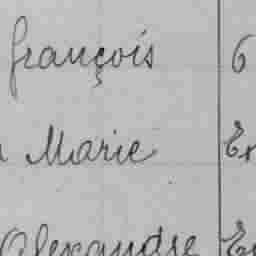 françois 6
Marie Ex
Alexandre Ex